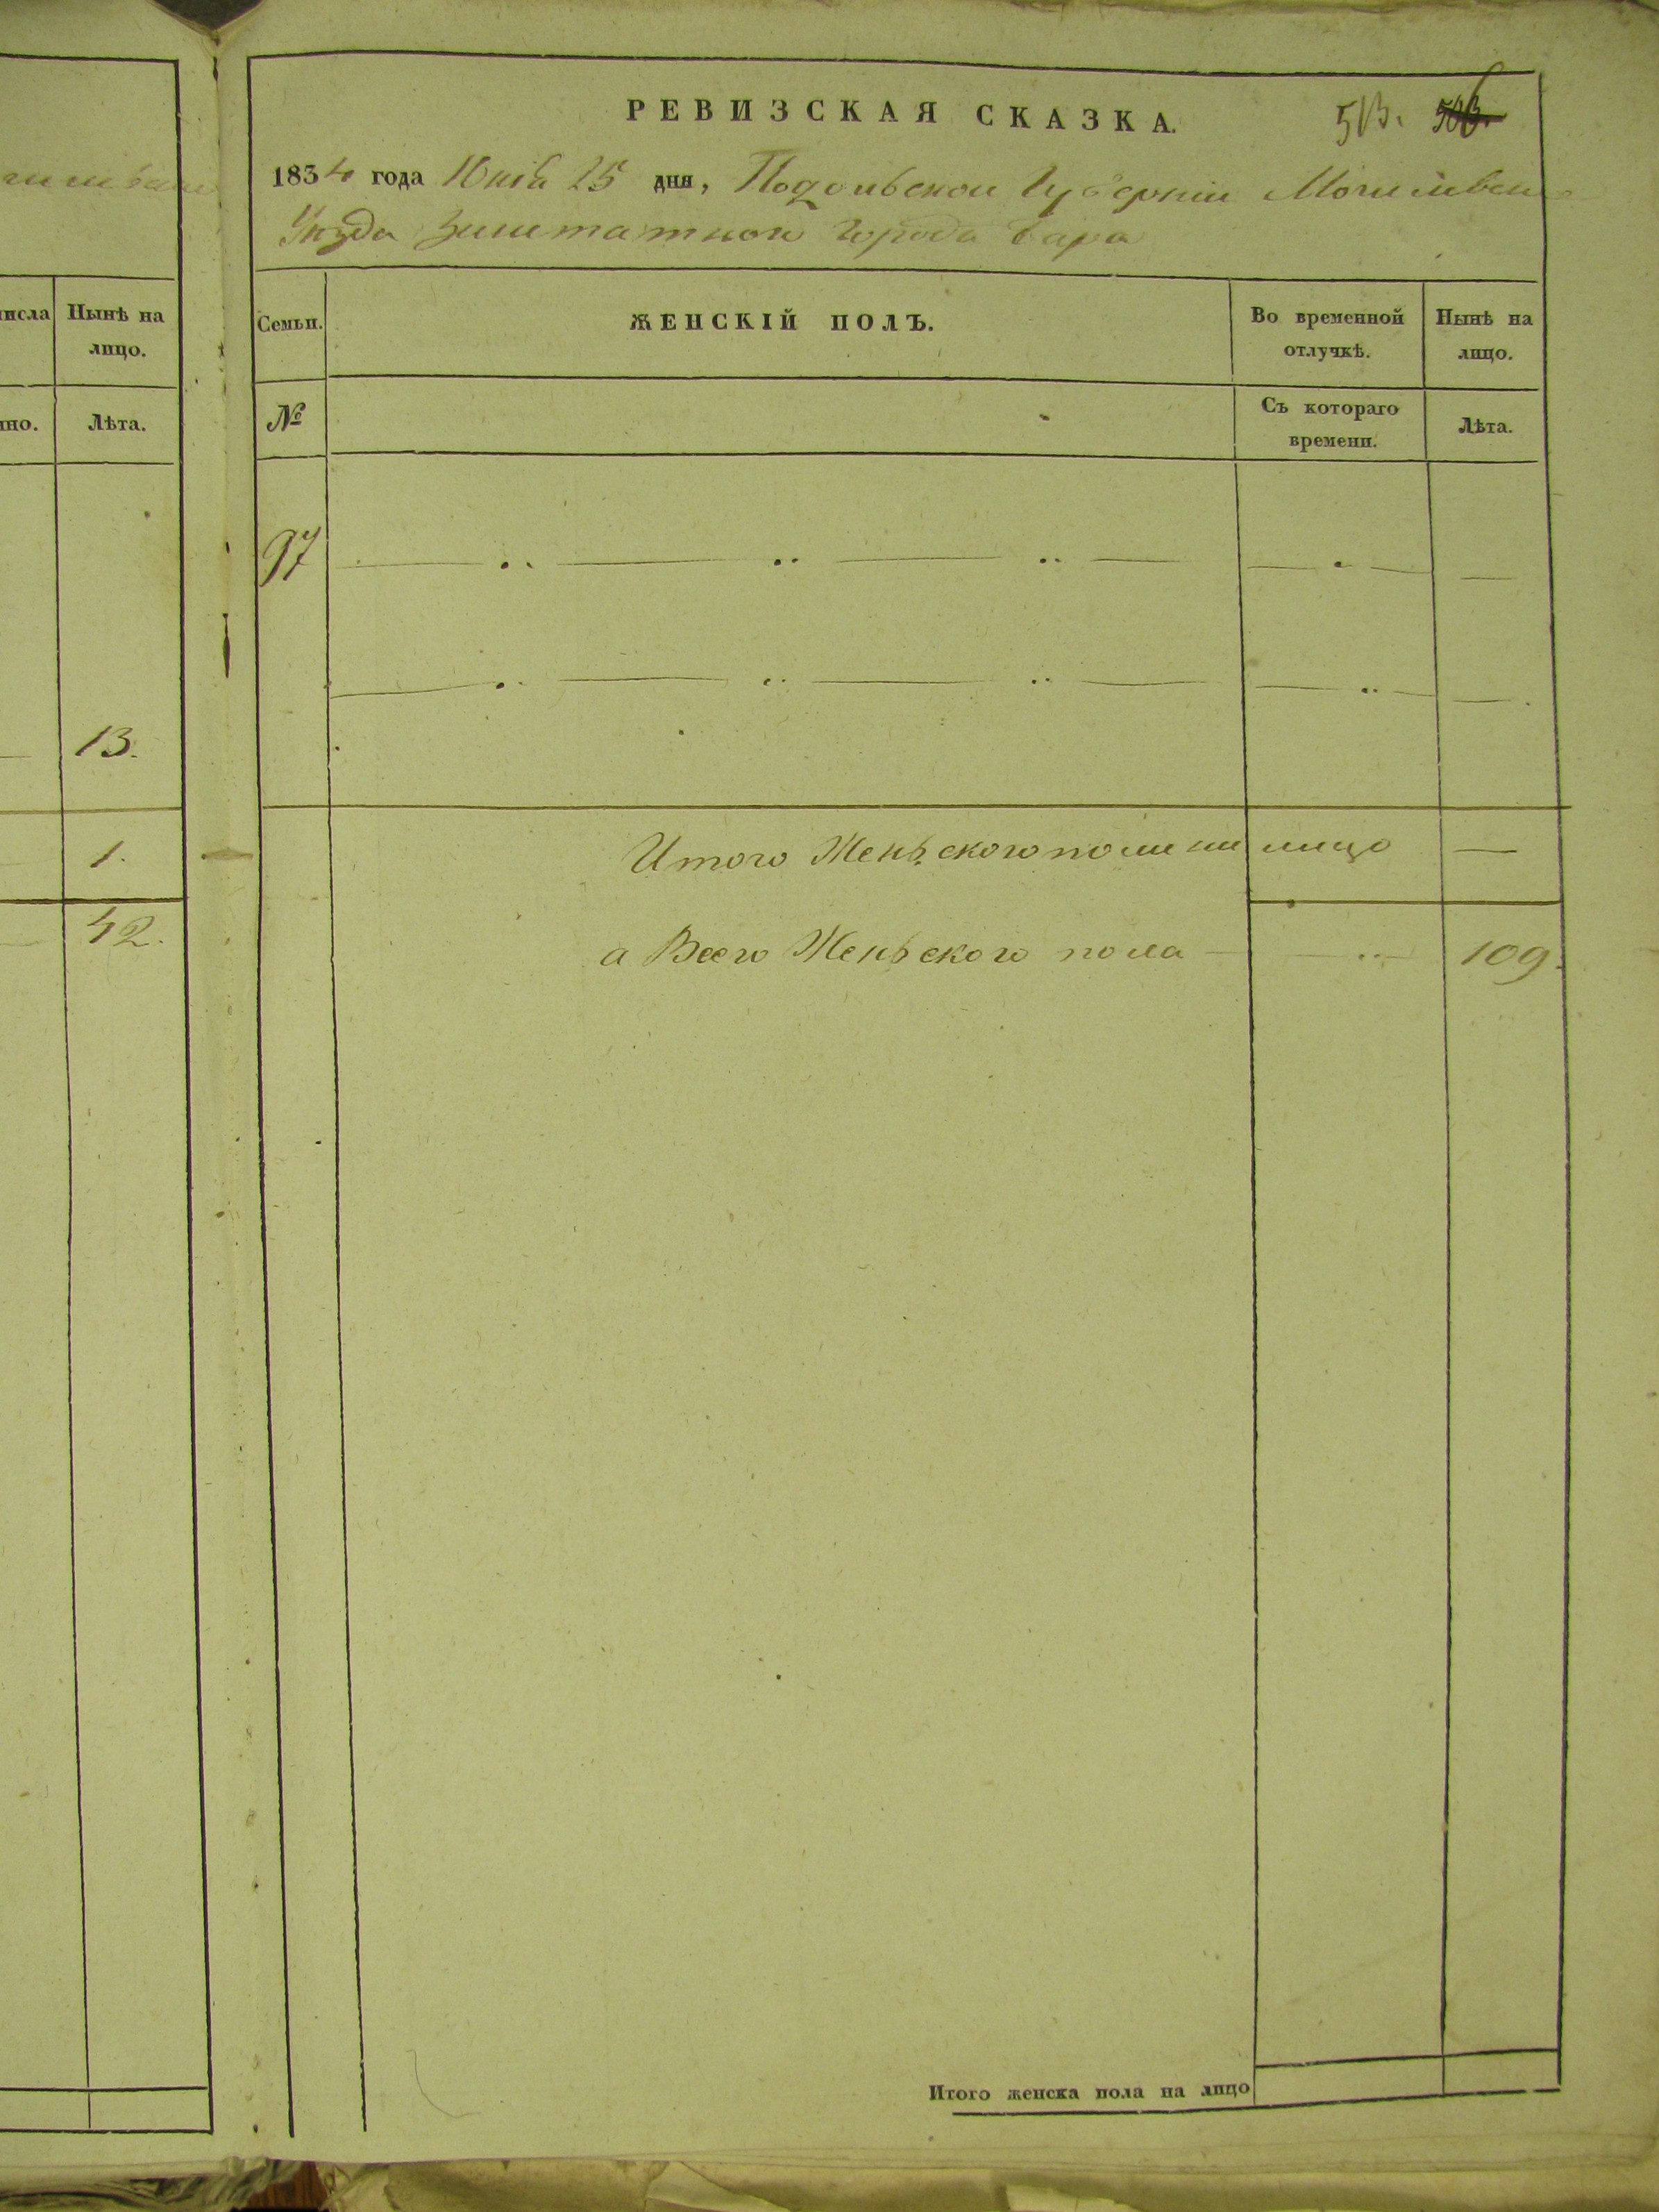 числа
Нынѣ на
лицо.
Лѣта.
13.
1.
42.
РЕВИЗСКАЯ СКАЗКА.
513.
1834 года Юнія 25 дня, Подольской Губерніи Могилевска
Уѣзда Заштатного города Бара
Семьи.
ЖЕНСКІЙ ПОЛЪ.
Во временной
отлучкѣ.
Нынѣ на
лицо.
№
Съ котораго
времени.
Лѣта.
97
Итого Женьского пола на лицо —
а Всего Женьского пола — 109.
Итого женска пола на лицо